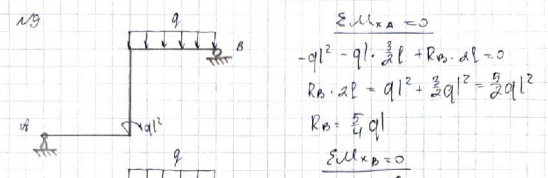 №9
q
B
A
ql²
q
ΣM×A = 0
-ql² - ql · 3/2 l + RB · 2l = 0
RB · 2l = ql² + 3/2 ql² = 5/2 ql²
RB = 5/4 ql
ΣM×B = 0